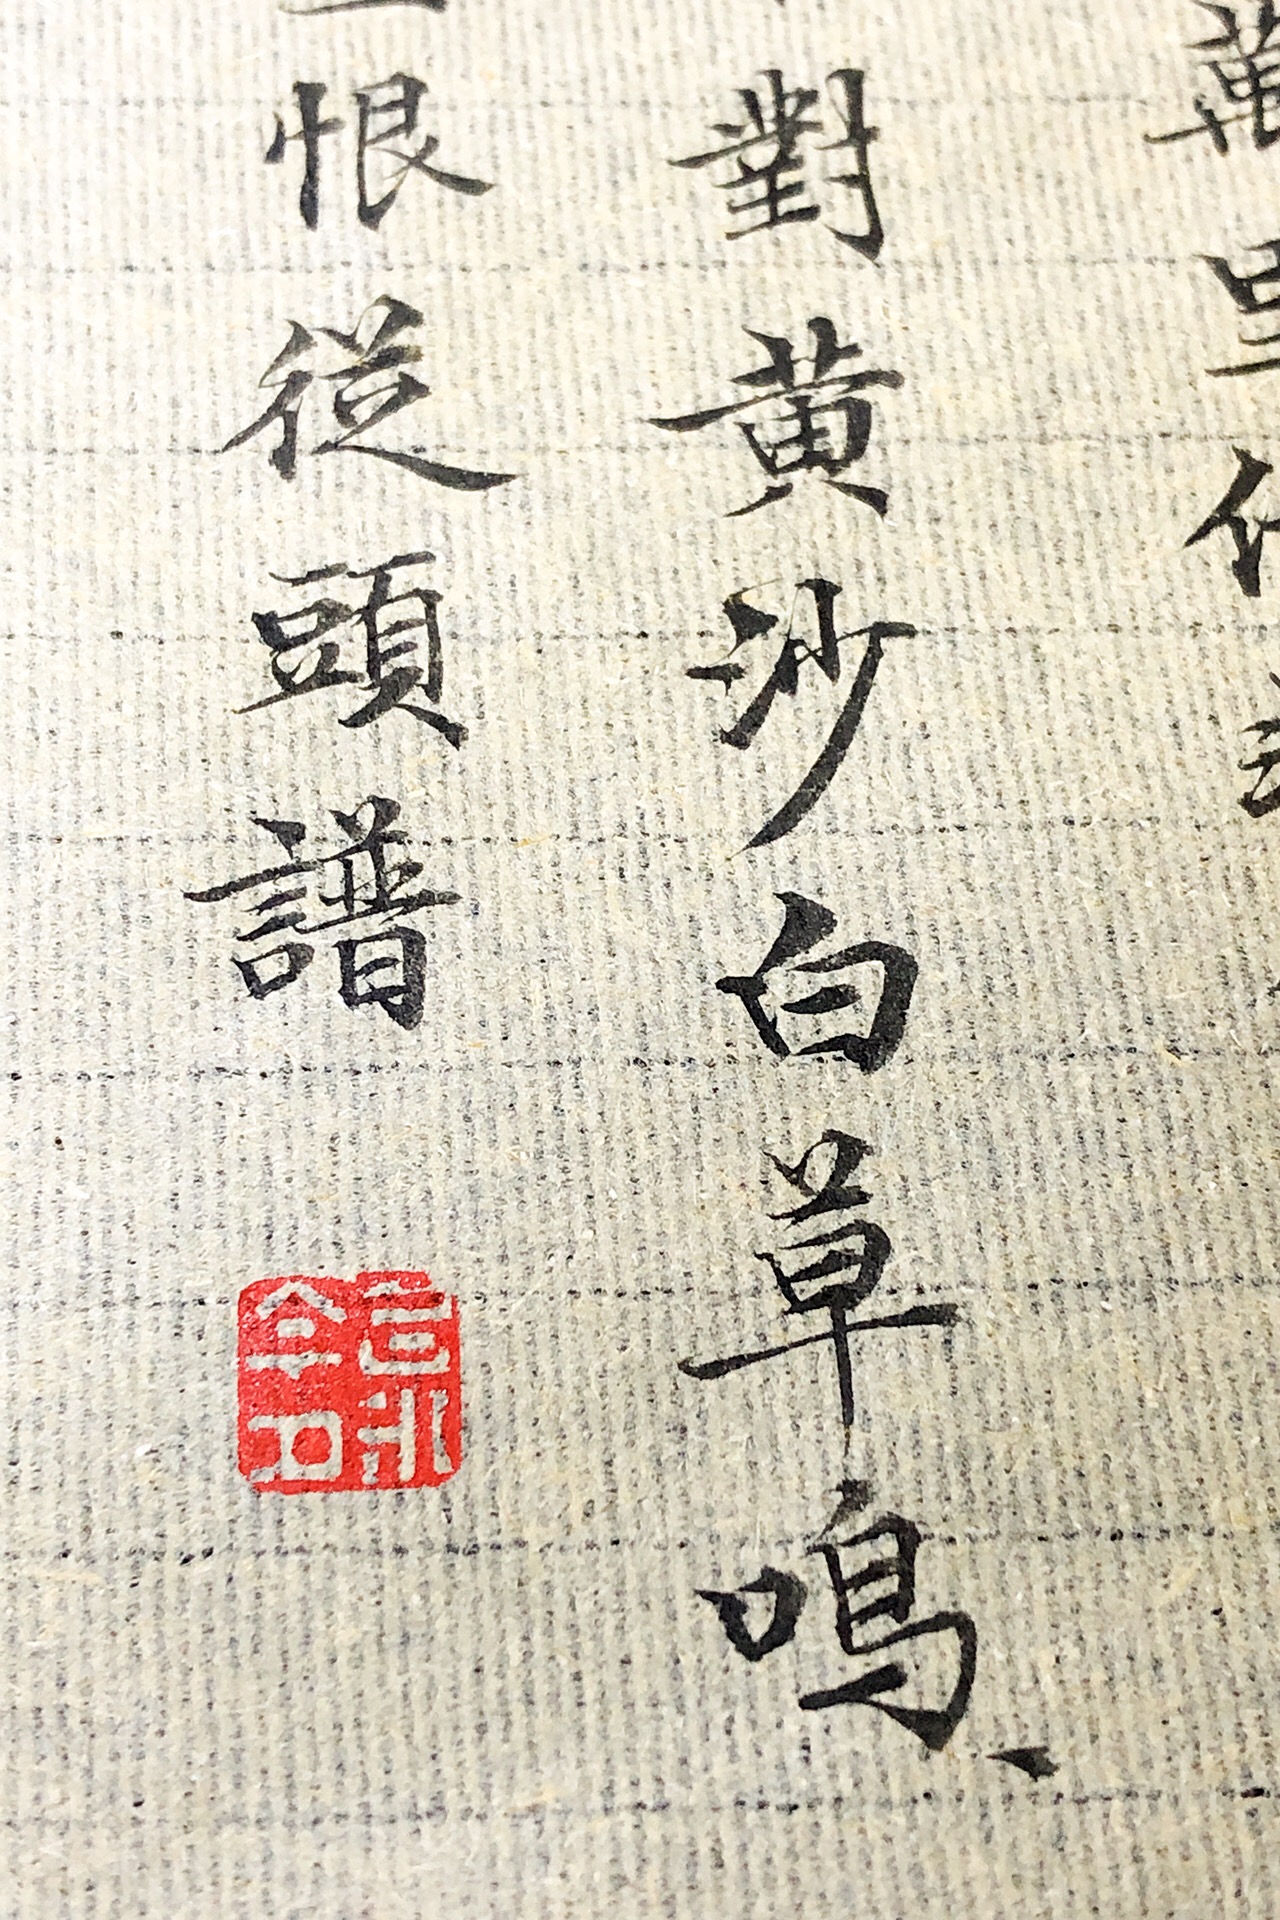 萬里
對黃沙白草鳴、
恨從頭譜